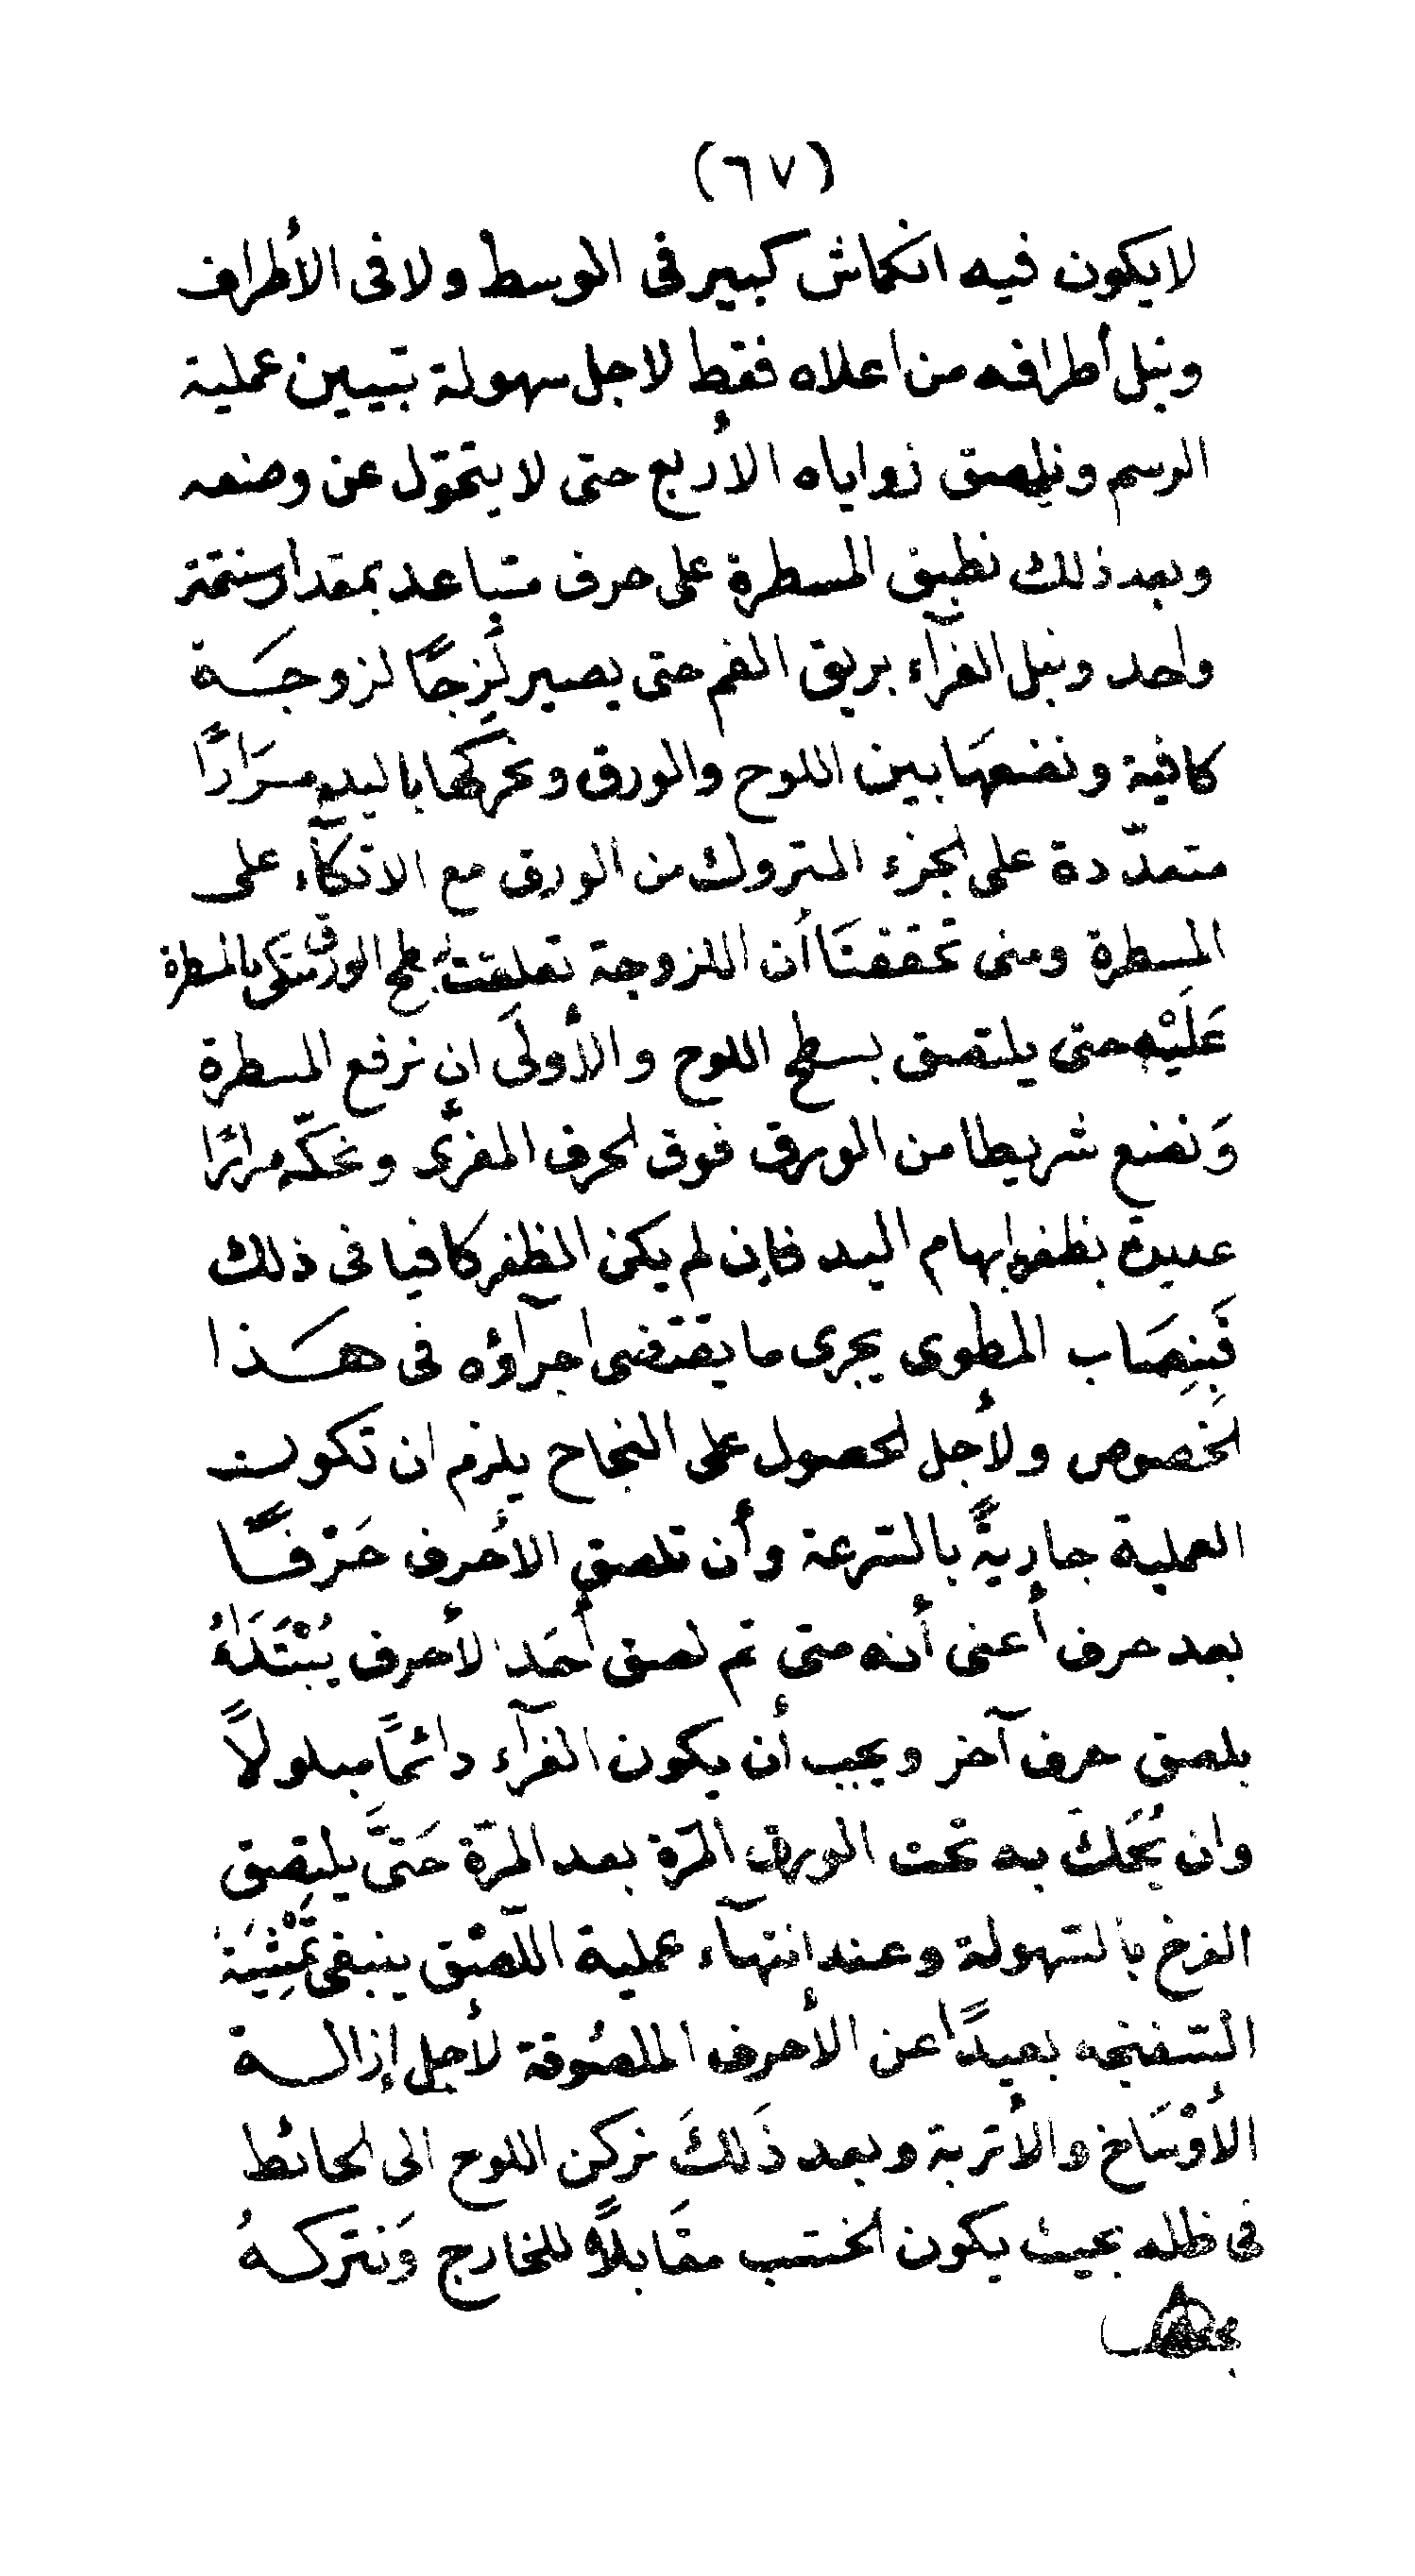 (٦٧)
لا يكون فيه انكماش كبير فى الوسط ولا فى الأطراف
ونبل أطرافه من اعلاه فقط لاجل سهولة تبيين عملية
الرسم ونلصق زواياه الأربع حتى لا يتحوّل عن وضعه
وبعد ذلك نطبق المسطرة على حرف متباعد بمقدار سنتمتر
واحد ونبل الغرآء بريق الفم حتى يصير لَزِجًا لزوجَة
كافية ونضعهَا بين اللوح والورق ونحرّكها باليد مرَارًا
متعدّدة على الجزء المتروك من الورق مع الاتكآء على
المسطرة ومتى تحققنَا أن اللزوجة تعلقت بسطح الورق نتكى بالمسطرة
عَلَيْه حتى يلتصق بسطح اللوح والأولَى ان نرفع المسطرة
وَنضع شريطا من الورق فوق الحرف المغرَّى ونحكّه مرارًا
عديدة بظفر ابهام اليد فإن لم يكن الظفر كافيا فى ذلك
فَبِنِصَاب المطوى يجرى ما يقتضى اجرآؤه فى هَذا
الخصوص ولأجل الحصول على النجاح يلزم ان تكون
العملية جاريةً بالسّرعة وأن تلصق الأحرف حَرْفًا
بعد حرف أعنى أنه متى تم لصق أحَد الأحرف يُبْتَدَأُ
بلصق حرف آخر ويجب أن يكون الغرآء دائمًا مبلولاً
وان يُحَكَّ به تحت الورق المرّة بعد المرّة حَتَّى يلتصِق
الفرخ بالسّهولة وعند انتهآء عملية اللّصْق ينبغى تَمْشِيَة
السّفنجه بعيدًا عن الأحرف الملصُوقة لأجل إزالة
الأوْسَاخ والأتربة وبعد ذَلكَ نركن اللوح الى الحائط
فى ظله بحيث يكون الخشب مقَابلاً للخارج وَنتركهُ